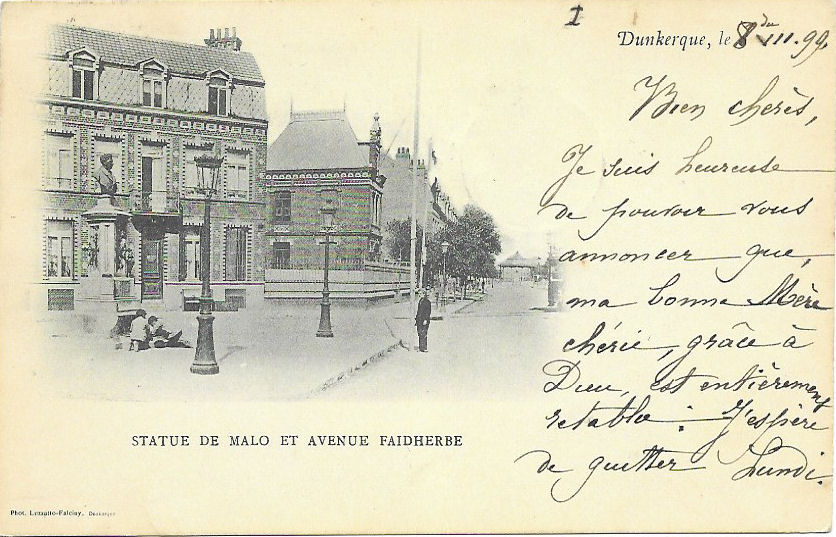 I
Dunkerque, le 8 du III. 99.
Bien chères,
Je suis heureuse
de pouvoir vous
annoncer que,
ma bonne Mère
chérie, grâce à
Dieu, est entièrement
rétablie. J'espère
de quitter Lundi.
STATUE DE MALO ET AVENUE FAIDHERBE
Phot. Dunkerque